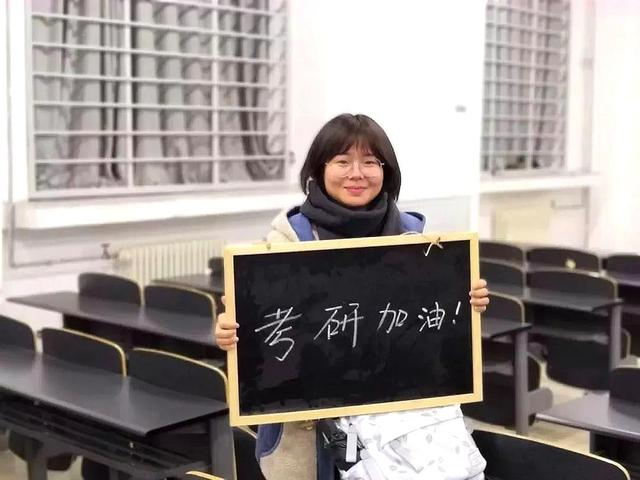 考研加油!